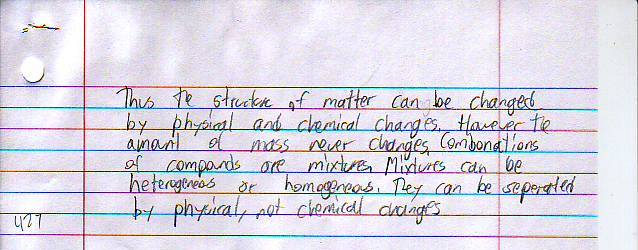 Thus the structure of matter can be changed
by physical and chemical changes. However the
amount of mass never changes. Combonations
of compounds are mixtures. Mixtures can be
heterogeneos or homogeneous. They can be seperated
by physical, not chemical changes
427